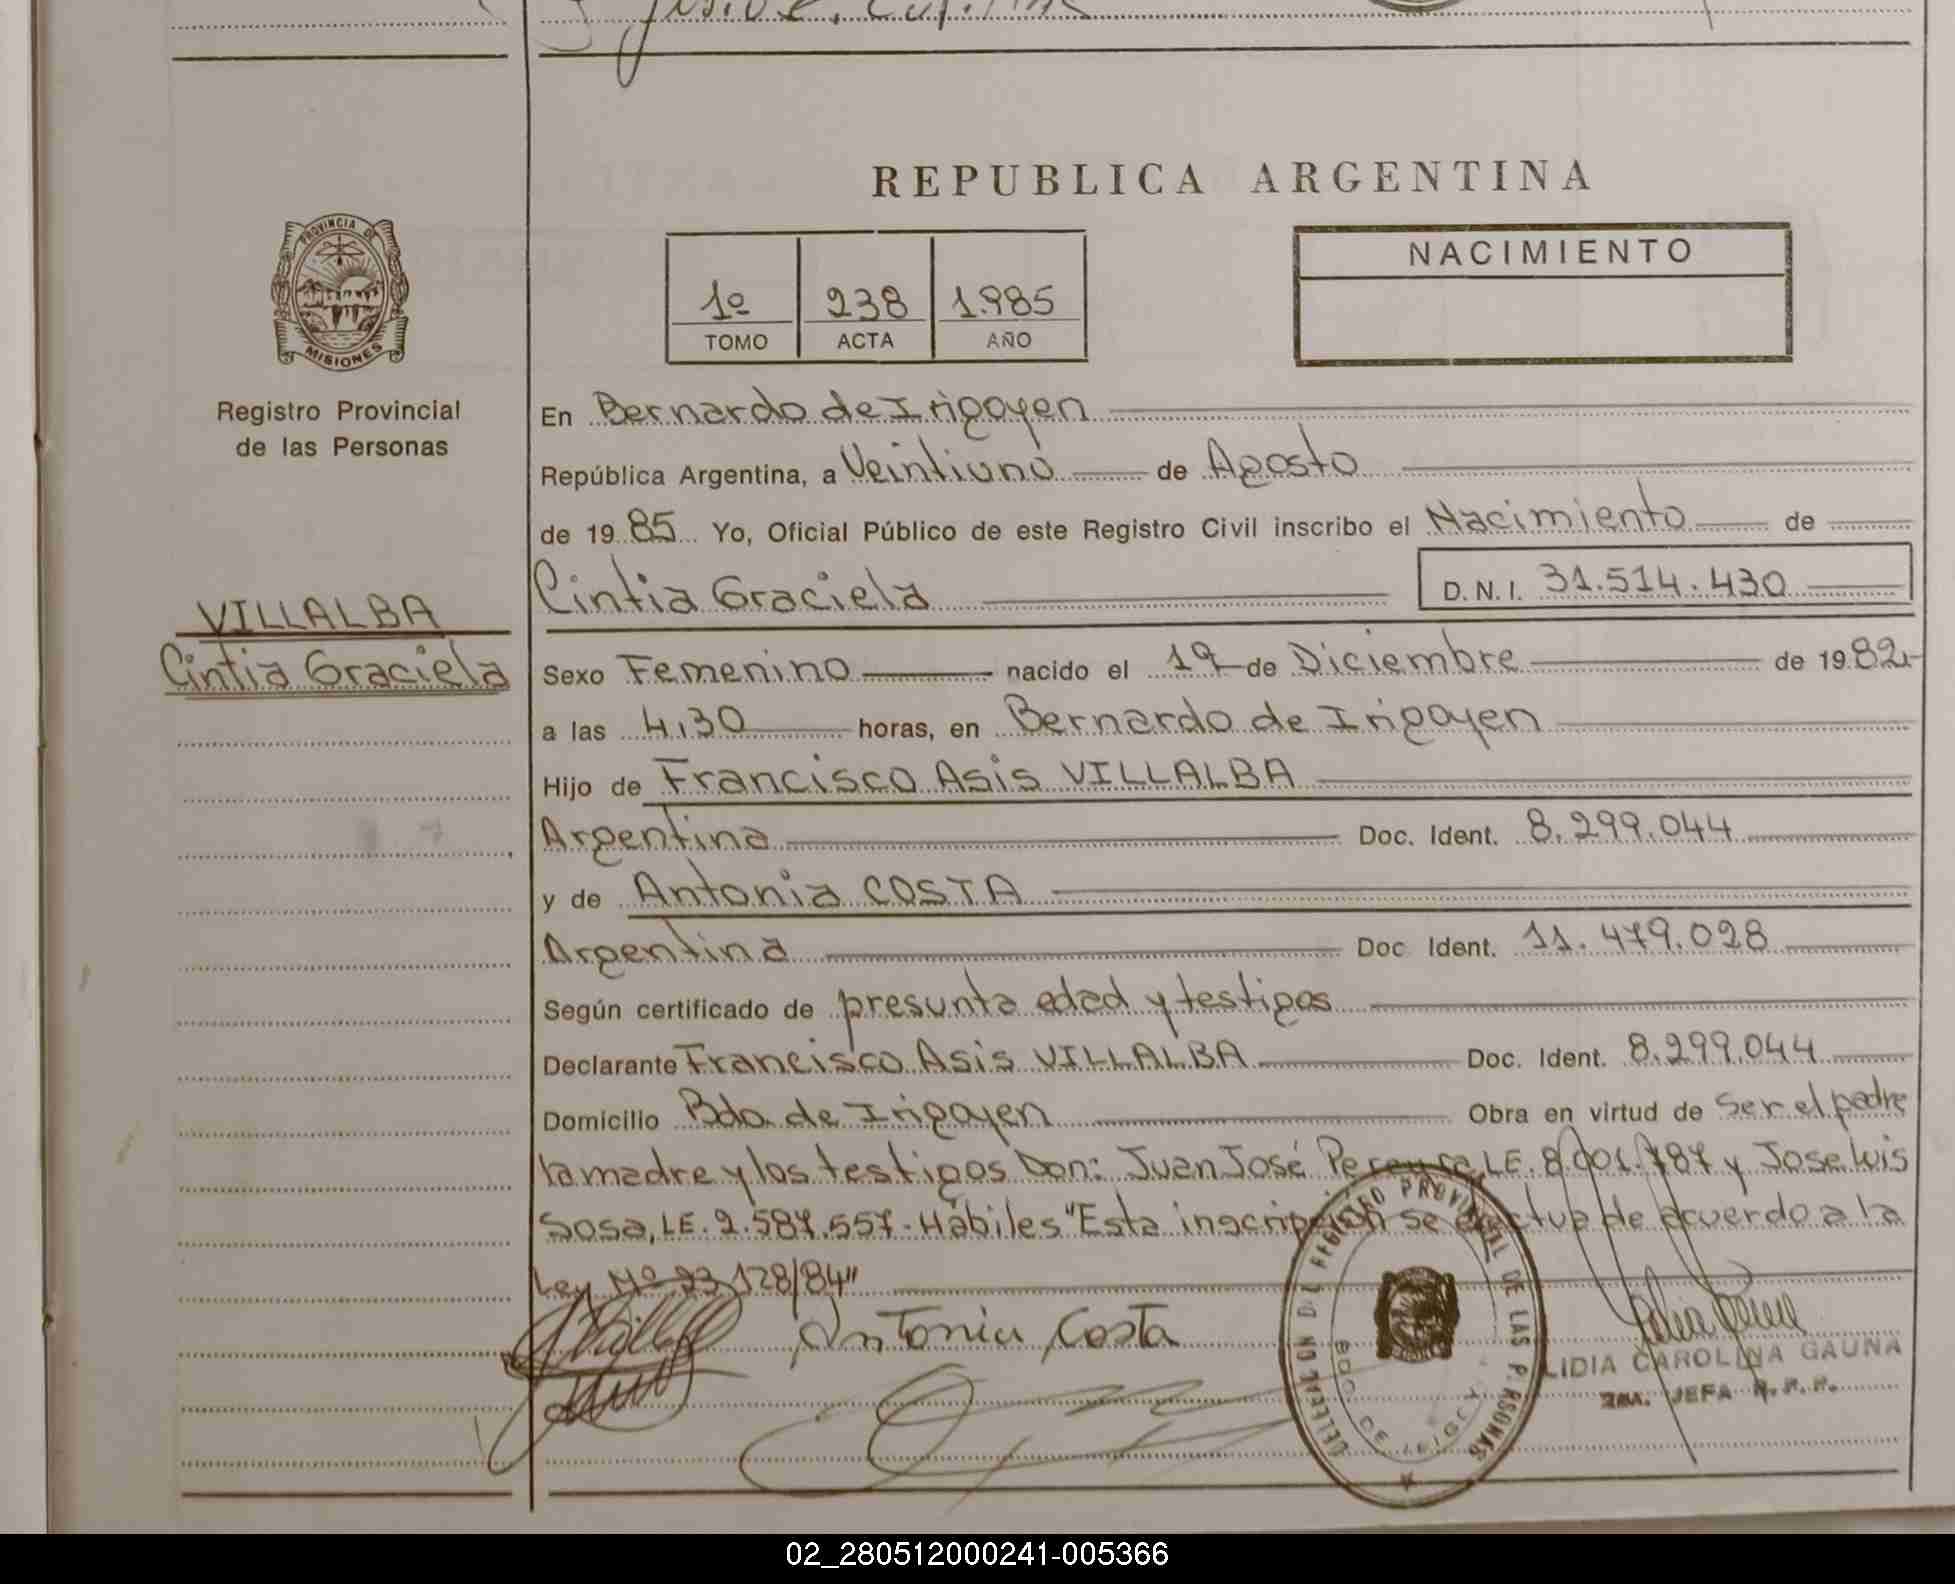 REPUBLICA ARGENTINA
PROVINCIA DE
MISIONES
Registro Provincial
de las Personas
1º 238 1.985
TOMO ACTA AÑO
NACIMIENTO
En Bernardo de Irigoyen
República Argentina, a Veintiuno de Agosto
de 19 85 Yo, Oficial Público de este Registro Civil inscribo el Nacimiento de
Cintia Graciela D.N.I. 31.514.430
VILLALBA
Cintia Graciela
Sexo Femenino nacido el 19 de Diciembre de 19 82
a las 4,30 horas, en Bernardo de Irigoyen
Hijo de Francisco Asis VILLALBA
Argentina Doc. Ident. 8.299.044
y de Antonia COSTA
Argentina Doc Ident. 11.479.028
Según certificado de presunta edad y testigos
Declarante Francisco Asis VILLALBA Doc. Ident. 8.299.044
Domicilio Bdo. de Irigoyen Obra en virtud de Ser el padre
la madre y los testigos Don: Juan José Pereyra, LE. 8.001.787 y Jose Luis
Sosa, LE. 2.587.557- Hábiles "Esta inscripción se efectua de acuerdo a la
Ley Nº 23.128/84"
Antonia Costa
DELEGACION DEL REGISTRO PROVINCIAL DE LAS PERSONAS
BDO. DE IRIGOYEN
LIDIA CAROLINA GAUNA
JEFA R.P.P.
02_280512000241-005366